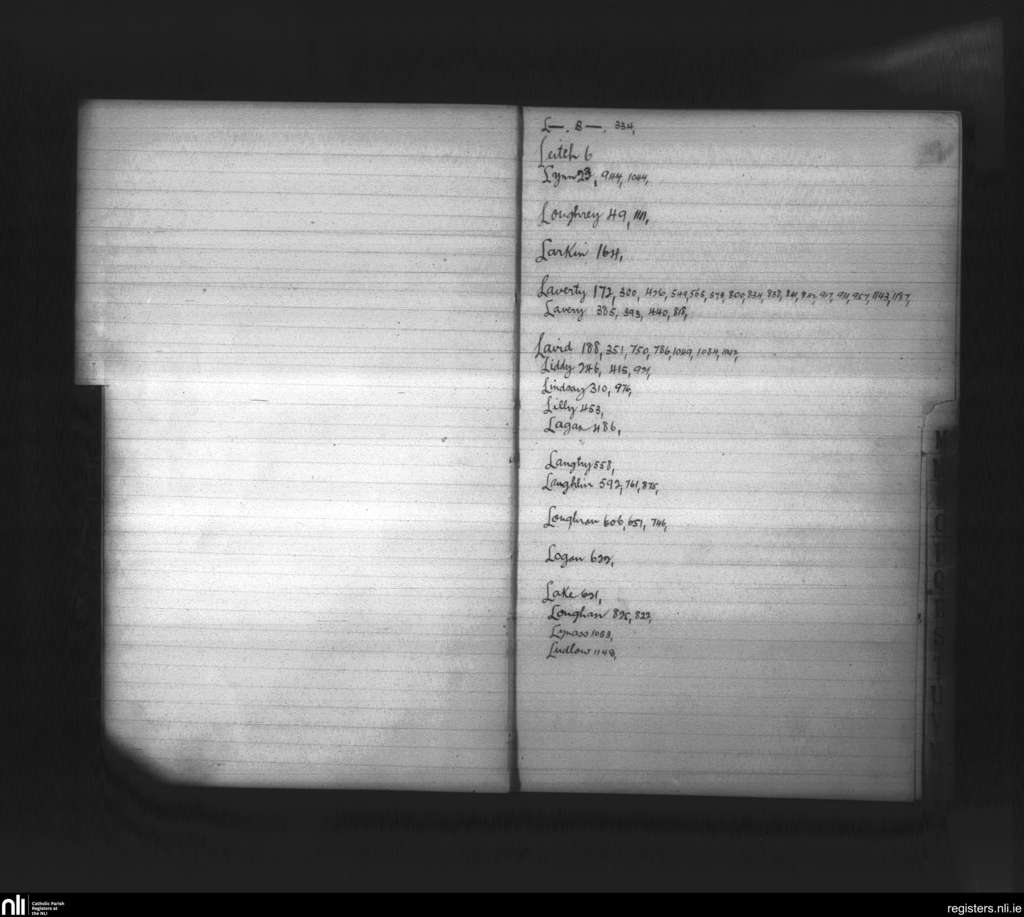 L—. B—. 334,
Leitch 6
Lynn 23, 944, 1044,
Loughrey 49, 1111,
Larkin 164,
Laverty 172, 300, 426, 549, 565, 579, 800, 834, 838, 841, 917, 957, 1143, 1187,
Lavery 385, 393, 440, 818,
Laird 188, 351, 750, 786, 1049, 1084,
Liddy 246, 415,
Lindsay 310, 976,
Lilly 453,
Lagan 486,
Langtry 558,
Laughlin 592, 761, 875,
Loughran 606, 651, 746,
Logan 622,
Lake 691,
Loughan 825, 822,
1053,
Ludlow 1148,
M
nli
Catholic Parish
Registers at
the NLI
registers.nli.ie